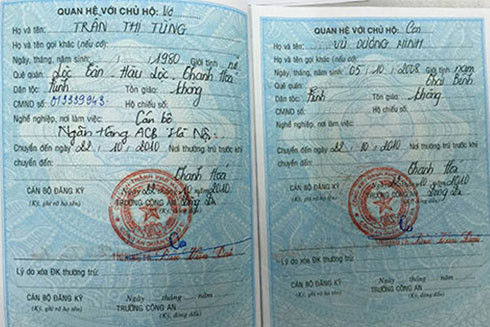 QUAN HỆ VỚI CHỦ HỘ: Vợ
Họ và tên: TRẦN THỊ TÙNG
Họ và tên gọi khác (nếu có):
Ngày, tháng, năm sinh: 1980 Giới tính: nữ
Quê quán: Lộc Tân Hậu Lộc Thanh Hoá
Dân tộc: Kinh Tôn giáo: không
CMND số: Hộ chiếu số:
Nghề nghiệp, nơi làm việc: Cán bộ
Ngân Hàng ACB Hà Nội
Chuyển đến ngày: 22.10.2010 Nơi thường trú trước khi
chuyển đến:
Thanh Hoá
năm 2010
CÁN BỘ ĐĂNG KÝ TRƯỞNG CÔNG AN
(Ký, ghi rõ họ tên)
Lý do xóa ĐK thường trú:
Ngày tháng năm
CÁN BỘ ĐĂNG KÝ TRƯỞNG CÔNG AN
(Ký, ghi rõ họ tên) (Ký, đóng dấu)
QUAN HỆ VỚI CHỦ HỘ: Con
Họ và tên: VŨ DƯƠNG MINH
Họ và tên gọi khác (nếu có):
Ngày, tháng, năm sinh: 05.10.2008 Giới tính: nam
Quê quán: Thái Bình
Dân tộc: Kinh Tôn giáo: không
CMND số: Hộ chiếu số:
Nghề nghiệp, nơi làm việc:
Chuyển đến ngày: 22.10.2010 Nơi thường trú trước khi
chuyển đến:
Thanh Hoá
năm 2010
CÁN BỘ ĐĂNG KÝ TRƯỞNG CÔNG AN
(Ký, ghi rõ họ tên)
Lý do xóa ĐK thường trú:
Ngày tháng năm
CÁN BỘ ĐĂNG KÝ TRƯỞNG CÔNG AN
(Ký, ghi rõ họ tên) (Ký, đóng dấu)